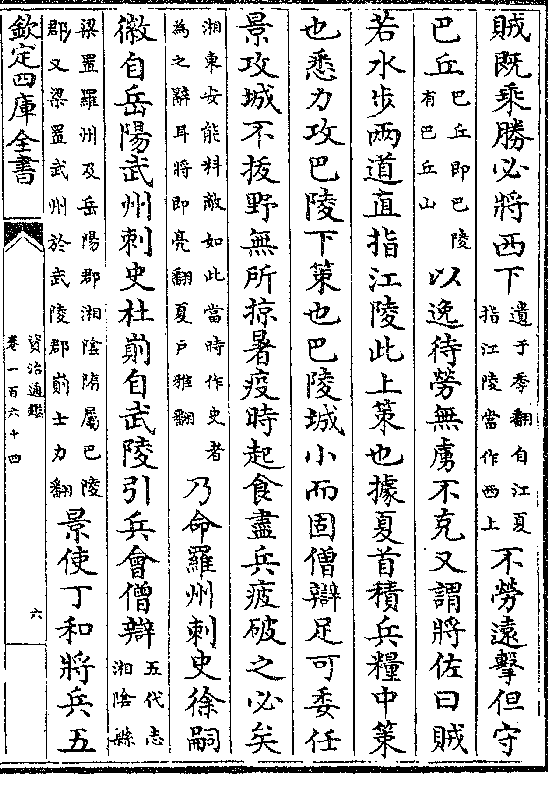 賊既乘勝必將西下遺于季翻自江夏指江陵當作西上不勞遠擊但守
巴丘巴丘即巴陵有巴丘山以逸待勞無虜不克又謂將佐曰賊
若水步兩道直指江陵此上策也據夏首積兵糧中策
也悉力攻巴陵下策也巴陵城小而固僧辯足可委任
景攻城不拔野無所掠暑疫時起食盡兵疲破之必矣
湘東安能料敵如此當時作史者為之辭耳將即亮翻夏戸雅翻乃命羅州刺史徐嗣
徽自岳陽武州刺史杜崱自武陵引兵會僧辯五代志湘陰縣
梁置羅州及岳陽郡湘陰隋屬巴陵郡又梁置武州於武陵郡崱士力翻景使丁和將兵五
欽定四庫全書
資治通鑑
卷一百六十四
六